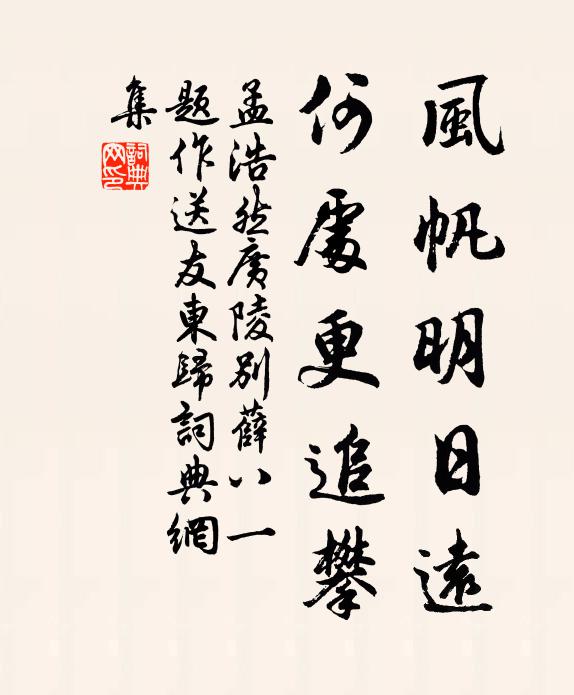 風帆明日遠
何處更追攀
孟浩然廣陵別薛八一
題作送友東歸詞典網
集
詞典
网印